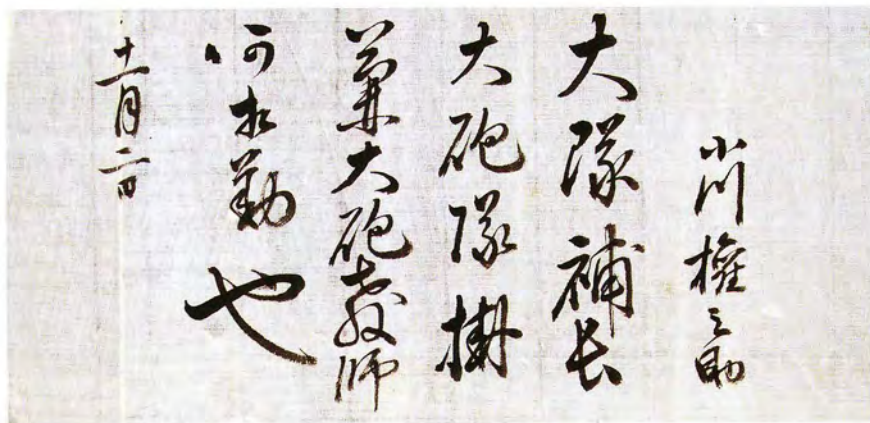 小川権之助
大隊補長
大砲隊掛
兼大砲教師
可相勤也
十一月二日